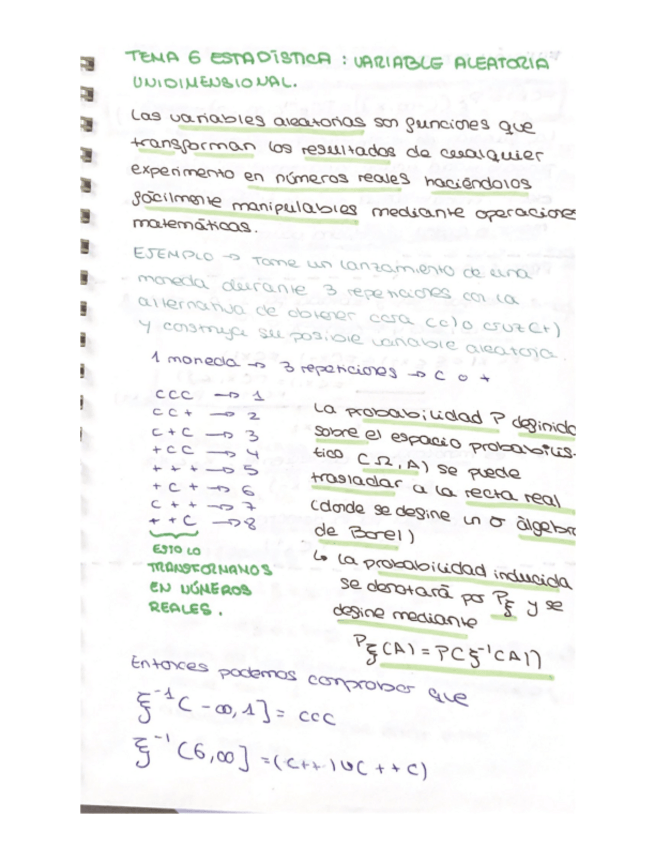 TEMA 6 ESTADÍSTICA : VARIABLE ALEATORIA
UNIDIMENSIONAL.
Las variables aleatorias son funciones que
transforman los resultados de cualquier
experimento en números reales haciéndolos
fácilmente manipulables mediante operacione
matemáticas.
EJEMPLO → Tome un lanzamiento de una
moneda durante 3 repeticiones con la
alternativa de obtener cara (c) o cruz (+)
y construya su posible variable aleatoria.
1 moneda → 3 repeticiones → C o +
CCC → 1
CC+ → 2
C+C → 3
+CC → 4
+++ → 5
+C+ → 6
C++ → 7
++C → 8
ESTO LO
TRANSFORMAMOS
EN NÚMEROS
REALES.
La probabilidad P definida
sobre el espacio probabilís-
tico (Ω, A) se puede
trasladar a la recta real
(donde se define un σ álgebra
de Borel)
↳ La probabilidad inducida
se denotará por Pξ y se
define mediante
Pξ(A) = P(ξ⁻¹(A))
Entonces podemos comprobar que
ξ⁻¹(-∞,1] = CCC
ξ⁻¹(6,∞] = (C++)∪(++C)